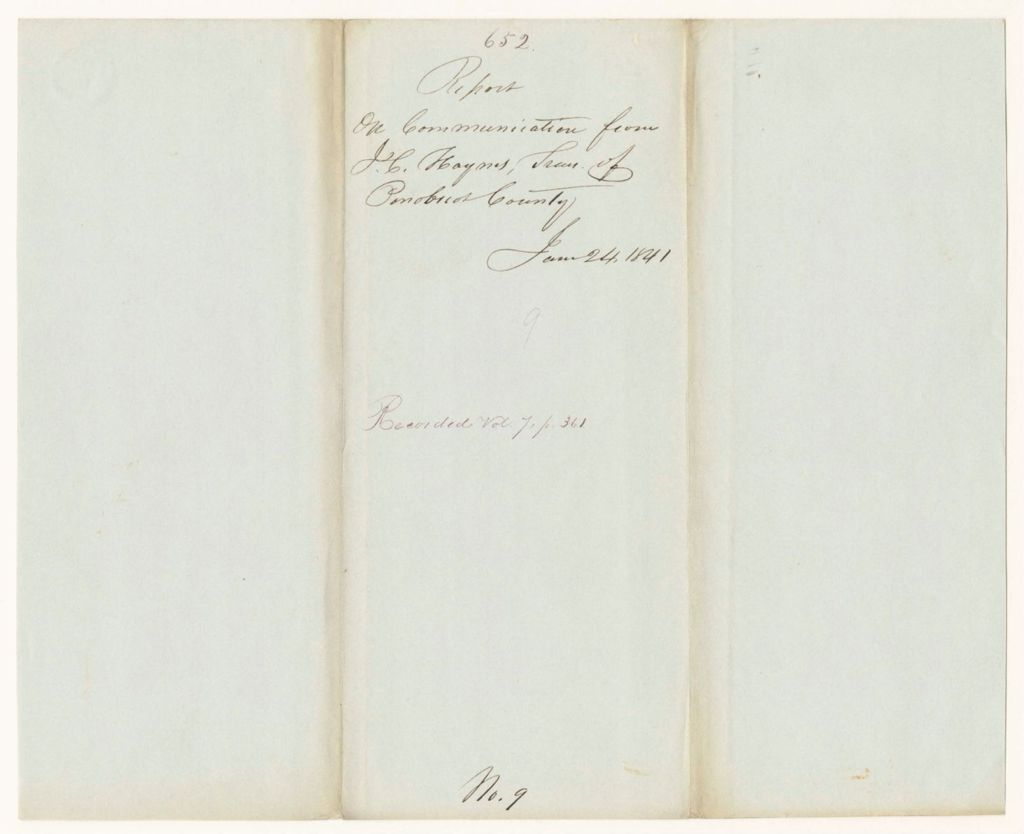 652.
Report
On Communication from
J. C. Haynes, Treas. of
Penobscot County
Jan 24, 1841
9
Recorded Vol. 7, p. 361
No. 9